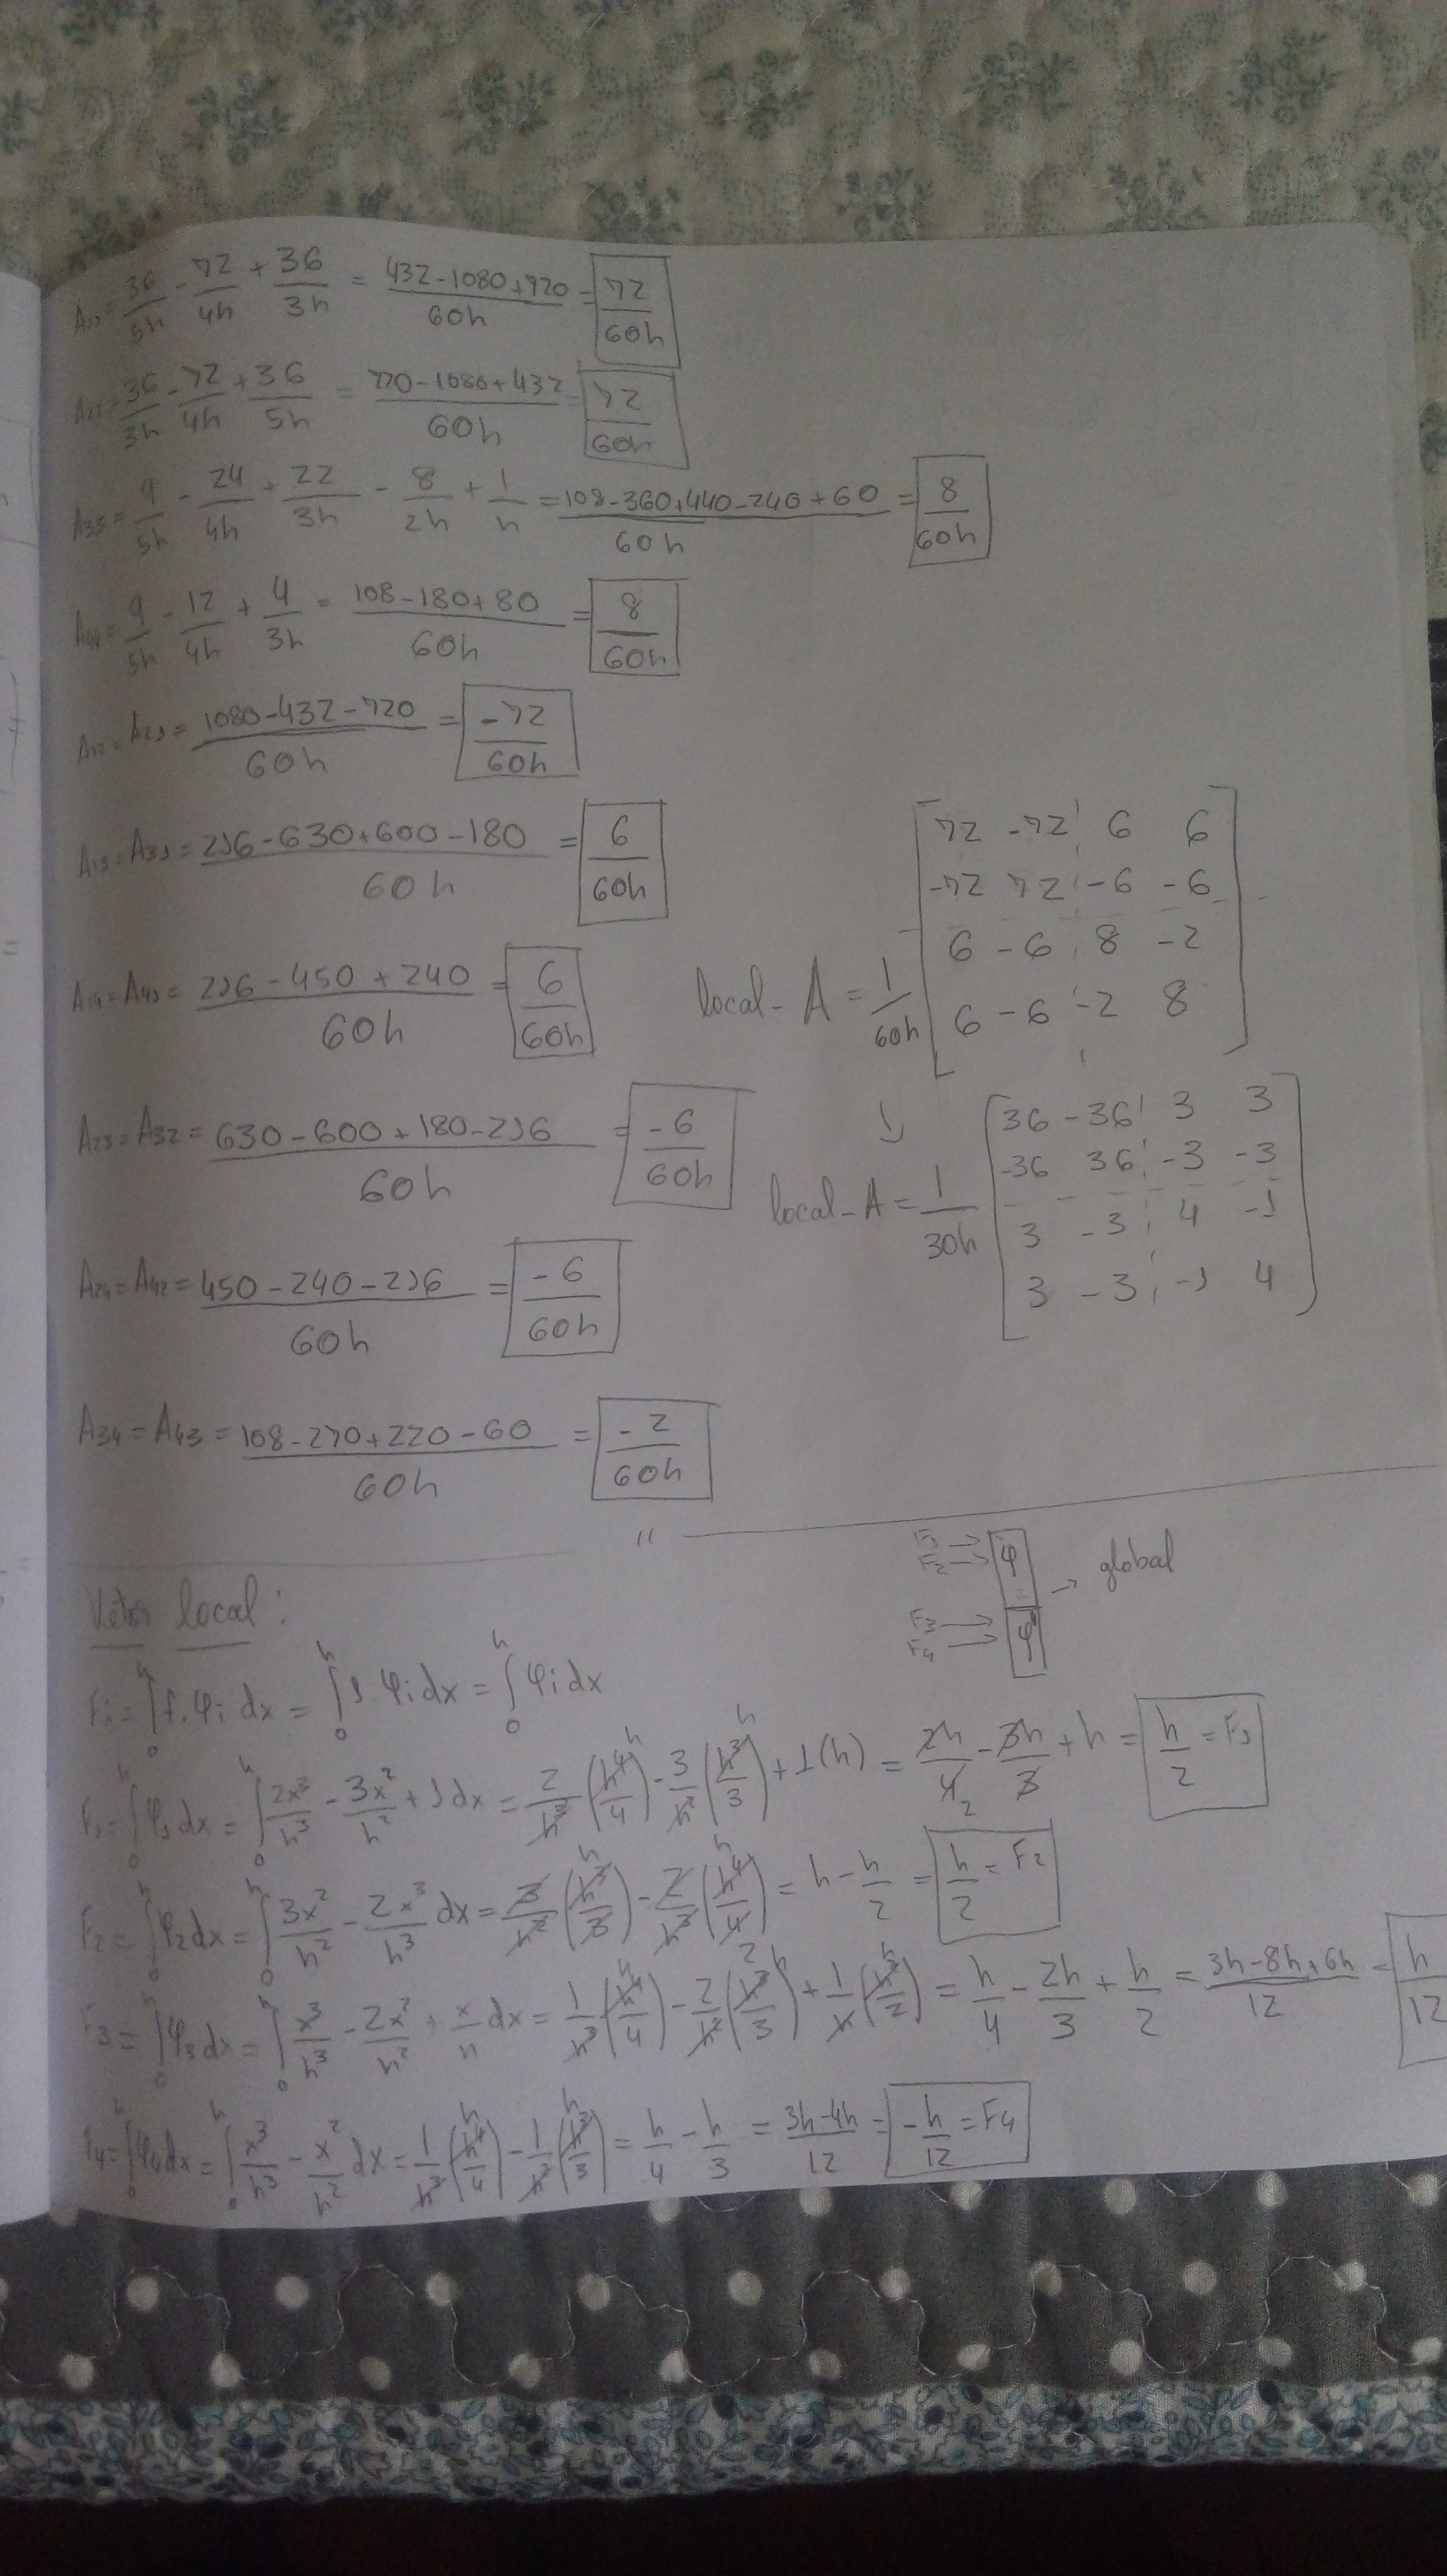 A₁₁ = 36/5h - 72/4h + 36/3h = (432-1080+720)/60h = 72/60h
A₂₂ = 36/3h - 72/4h + 36/5h = (720-1080+432)/60h = 72/60h
A₃₃ = 9/5h - 24/4h + 22/3h - 8/2h + 1/h = (108-360+440-240+60)/60h = 8/60h
A₄₄ = 9/5h - 12/4h + 4/3h = (108-180+80)/60h = 8/60h
A₁₂ = A₂₁ = (1080-432-720)/60h = -72/60h
A₁₃ = A₃₁ = (216-630+600-180)/60h = 6/60h
A₁₄ = A₄₁ = (216-450+240)/60h = 6/60h
A₂₃ = A₃₂ = (630-600+180-216)/60h = -6/60h
A₂₄ = A₄₂ = (450-240-216)/60h = -6/60h
A₃₄ = A₄₃ = (108-270+220-60)/60h = -2/60h
72 -72 6 6
-72 72 -6 -6
local-A = 1/60h
6 -6 8 -2
6 -6 -2 8
↓
36 -36 3 3
-36 36 -3 -3
local-A = 1/30h
3 -3 4 -1
3 -3 -1 4
"
F₁ →
F₂ → φ
→ global
F₃ →
F₄ → φ'
Vetor local:
Fi = ∫₀ʰ f.φi dx = ∫₀ʰ 1.φi dx = ∫₀ʰ φi dx
F₁ = ∫₀ʰ φ₁dx = ∫₀ʰ 2x³/h³ - 3x²/h² + 1 dx = 2/h³ (h⁴/4) - 3/h² (h³/3) + 1(h) = 2h/4 - 3h/3 + h = h/2 = F₁
F₂ = ∫₀ʰ φ₂dx = ∫₀ʰ 3x²/h² - 2x³/h³ dx = 3/h² (h³/3) - 2/h³ (h⁴/4) = h - h/2 = h/2 = F₂
F₃ = ∫₀ʰ φ₃dx = ∫₀ʰ x³/h³ - 2x²/h² + x/h dx = 1/h³ (h⁴/4) - 2/h² (h³/3) + 1/h (h²/2) = h/4 - 2h/3 + h/2 = (3h-8h+6h)/12 = h/12
F₄ = ∫₀ʰ φ₄dx = ∫₀ʰ x³/h³ - x²/h² dx = 1/h³ (h⁴/4) - 1/h² (h³/3) = h/4 - h/3 = (3h-4h)/12 = -h/12 = F₄